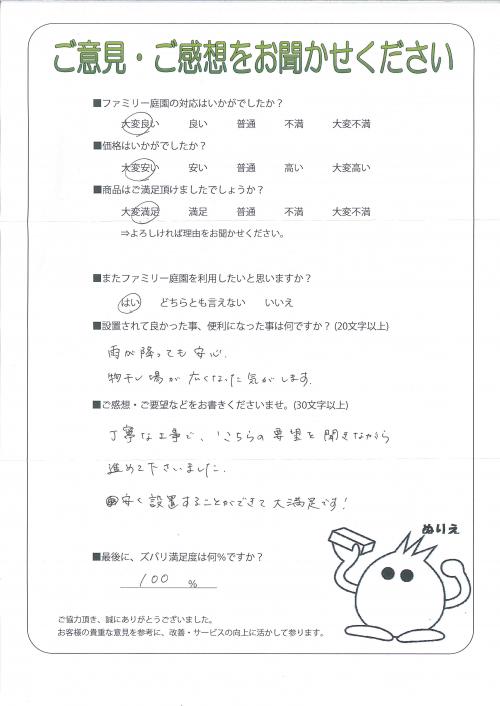 ご意見・ご感想をお聞かせください
■ファミリー庭園の対応はいかがでしたか？
大変良い 良い 普通 不満 大変不満
■価格はいかがでしたか？
大変安い 安い 普通 高い 大変高い
■商品はご満足頂けましたでしょうか？
大変満足 満足 普通 不満 大変不満
⇒よろしければ理由をお聞かせください。
■またファミリー庭園を利用したいと思いますか？
はい どちらとも言えない いいえ
■設置されて良かった事、便利になった事は何ですか？(20文字以上)
雨が降っても安心。
物干し場が広くなった気がします。
■ご感想・ご要望などをお書きくださいませ。(30文字以上)
丁寧な工事で、こちらの要望を聞きながら
進めて下さいました。
安く設置することができて大満足です！
ぬりえ
■最後に、ズバリ満足度は何％ですか？
100 ％
ご協力頂き、誠にありがとうございました。
お客様の貴重な意見を参考に、改善・サービスの向上に活かして参ります。